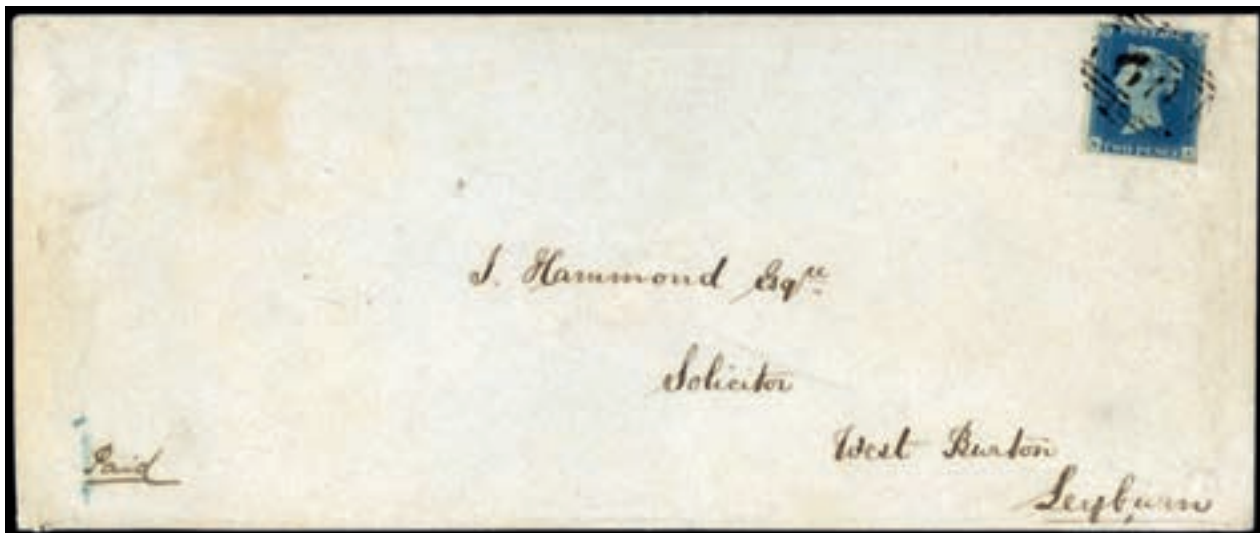 TWO PENCE
J. Hammond Esqre
Solicitor
West Burton
Leyburn
Paid